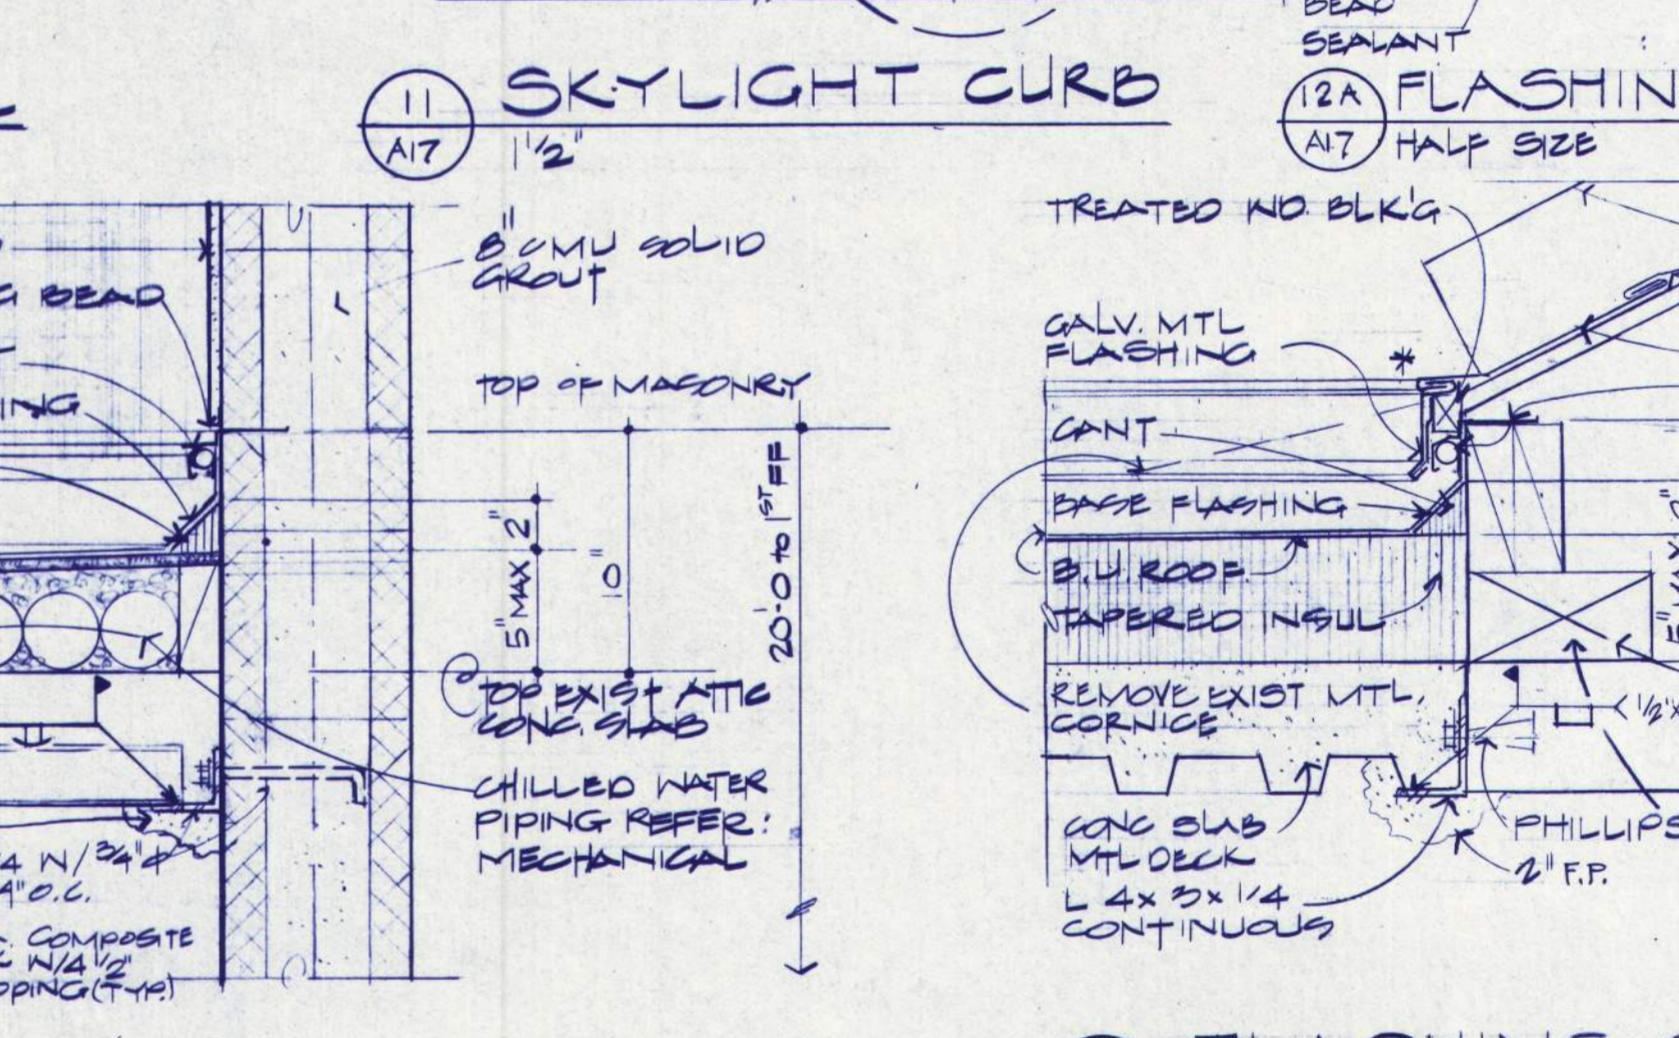 BEAD
SEALANT
11
A17
SKYLIGHT CURB
1 1/2"
12A
A17
FLASHIN
HALF SIZE
G BEAD
ING
8" CMU SOLID
GROUT
TOP OF MASONRY
5" MAX
2"
20'-0 to 1ST FF
TOP EXIST ATTIC
CONC. SLAB
CHILLED WATER
PIPING REFER:
MECHANICAL
4 W/ 3/4" φ
4" O.C.
C. COMPOSITE
W/4 1/2"
PPING (TYP.)
TREATED WD. BLK'G
GALV. MTL
FLASHING
*
CANT
BASE FLASHING
B.U. ROOF
TAPERED INSUL
REMOVE EXIST MTL.
CORNICE
CONC SLAB
MTL DECK
L 4x3x1/4
CONTINUOUS
1/2"x
PHILLIPS
2" F.P.